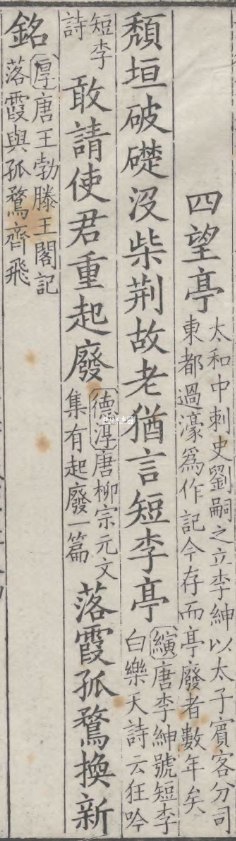 四望亭
太和中刺史劉嗣之立李紳以太子賓客分司
東都過濠爲作記今存而亭廢者數年矣
頹垣破礎没柴荆故老猶言短李亭
縯唐李紳號短李
白樂天詩云狂吟
短李
詩
敢請使君重起廢
德淳唐柳宗元文
集有起廢一篇
落霞孤鶩換新
銘
厚唐王勃滕王閣記
落霞與孤鶩齊飛